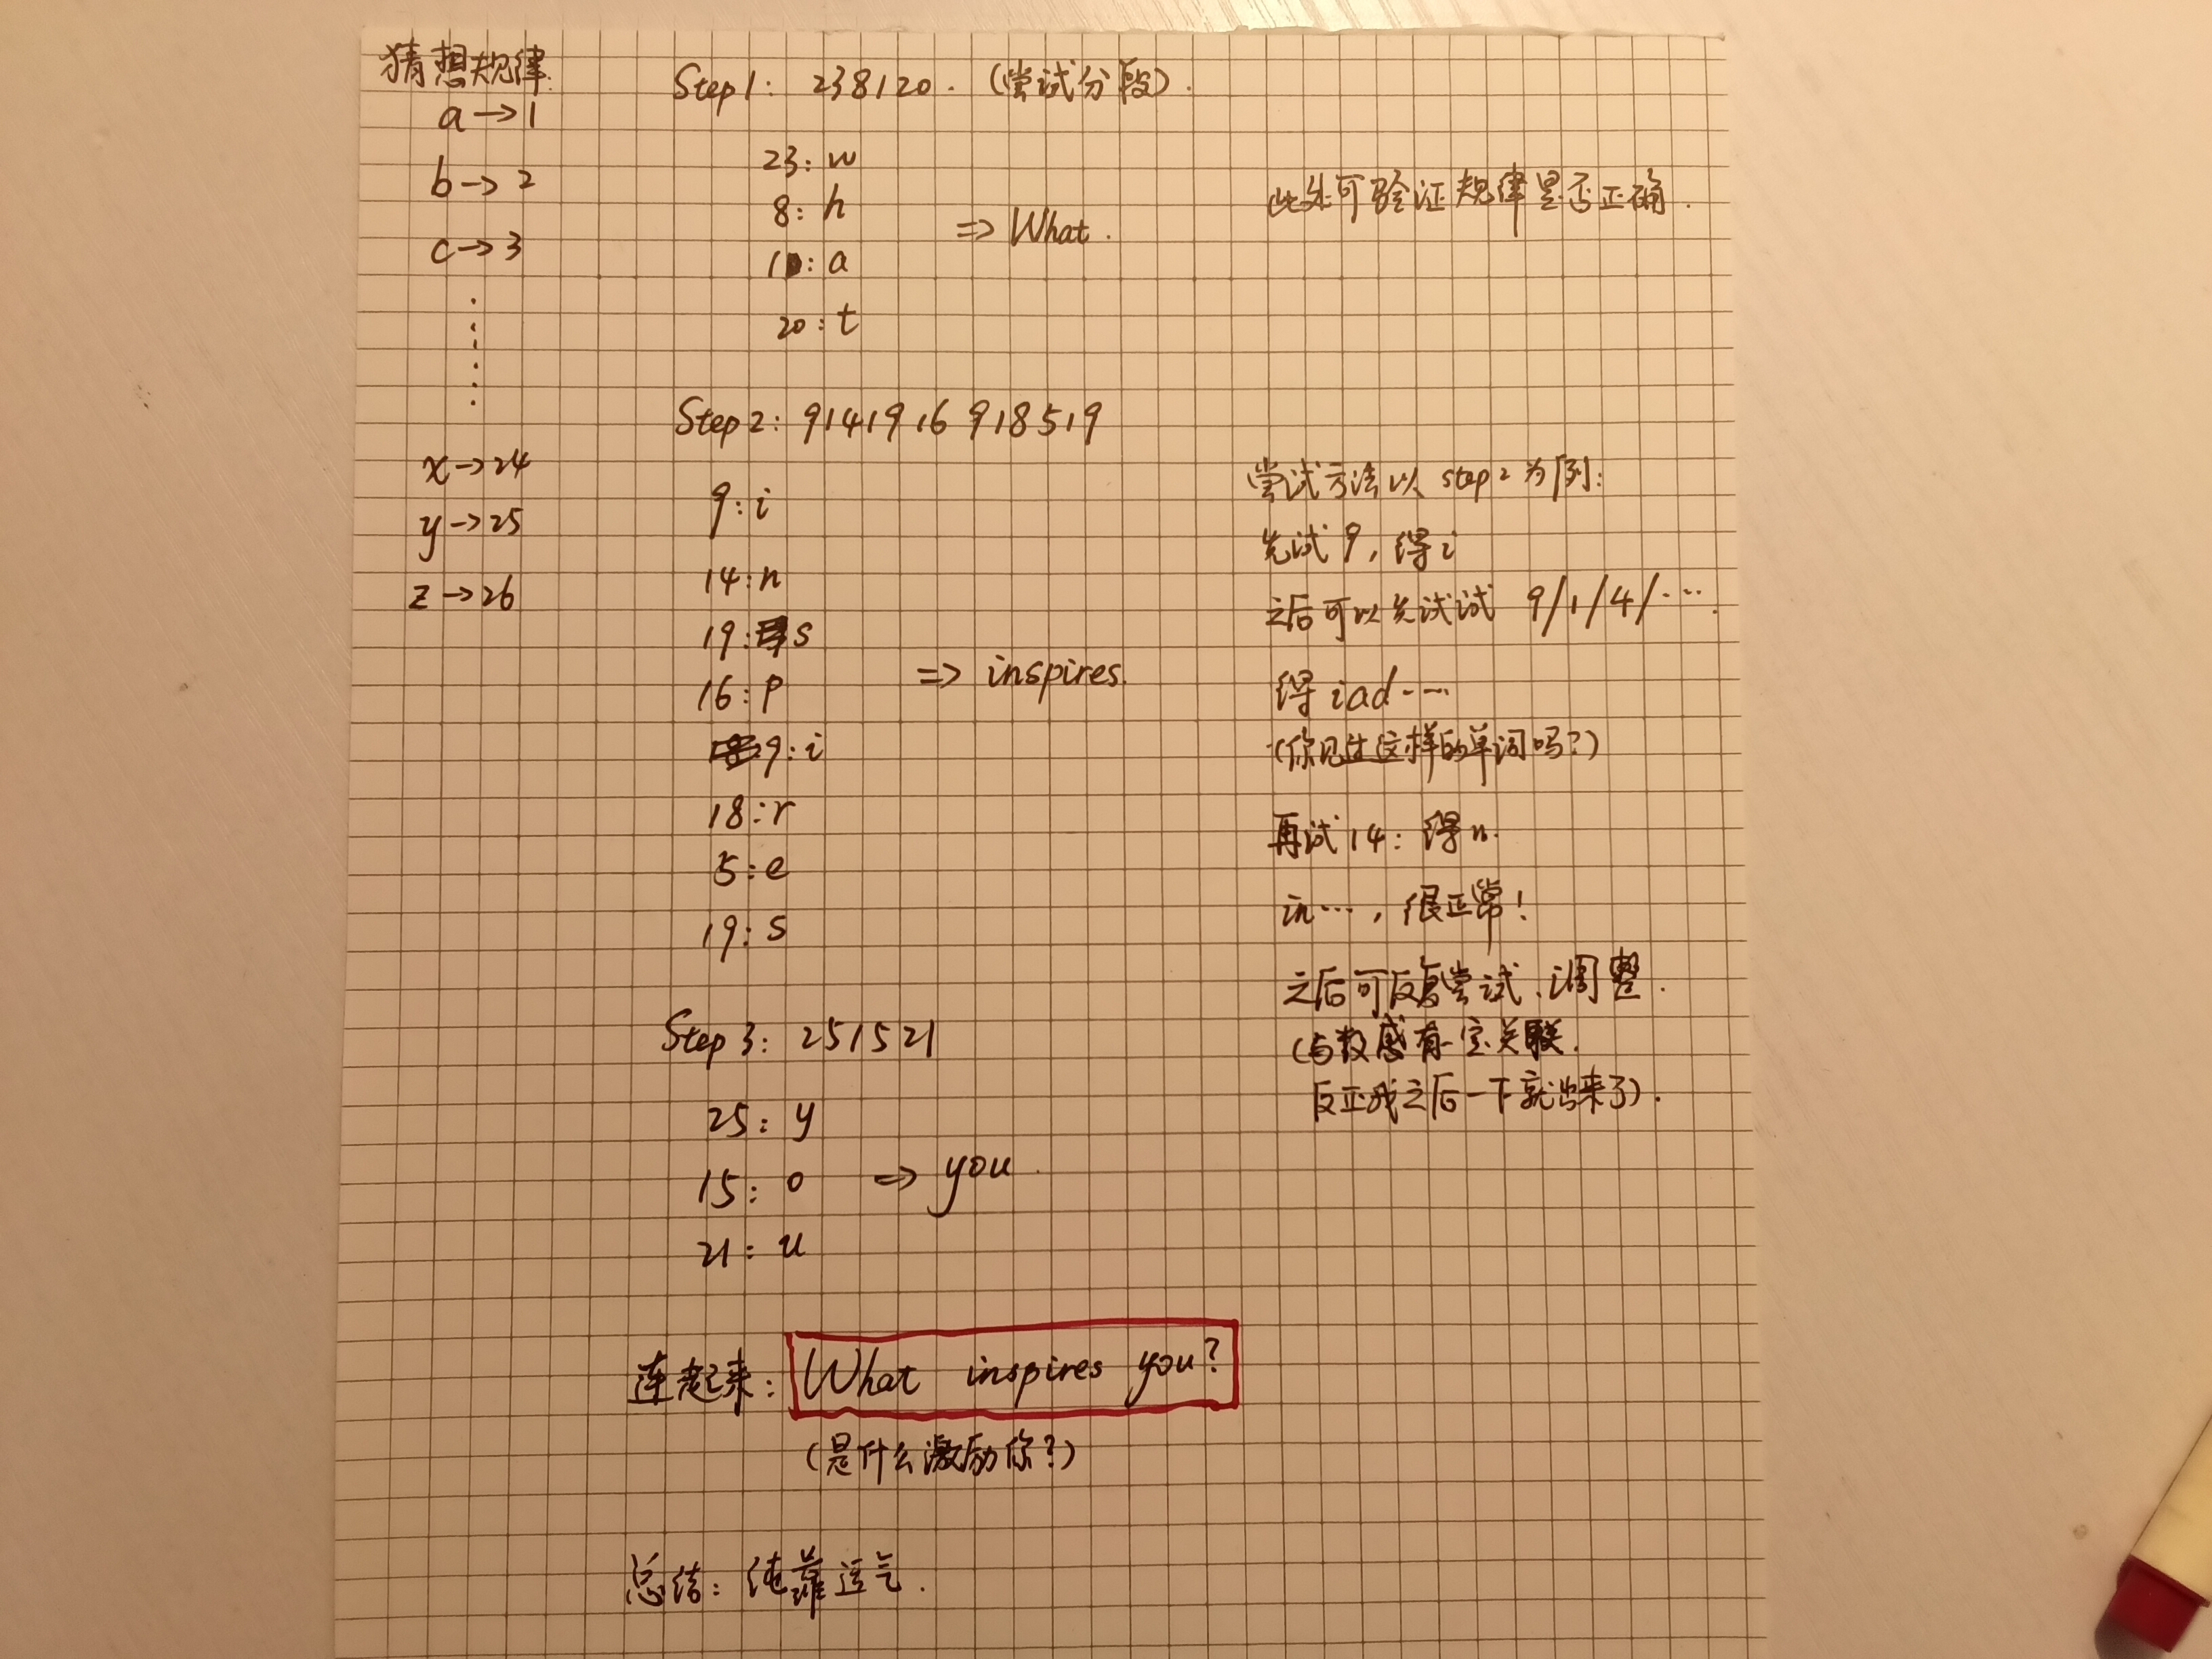 猜想规律:
a→1
b→2
c→3
x→24
y→25
z→26
Step1: 238120. (尝试分段).
23: w
8: h
1: a
20: t
=> What.
此处可验证规律是否正确.
Step2: 9141916 918519
9: i
14: n
19: s
16: p
9: i
18: r
5: e
19: s
=> inspires.
尝试方法以 step2 为列:
先试9, 得i
之后可以先试试 9/1/4/….
得iad……
(你见过这样的单词吗?)
再试14: 得n.
in…, 很正常!
之后可反复尝试、调整.
(与数感有一定关联.
反正我之后一下就出来了).
Step3: 251521
25: y
15: o
21: u
=> you.
连起来: What inspires you?
(是什么激励你?)
总结: 纯靠运气.